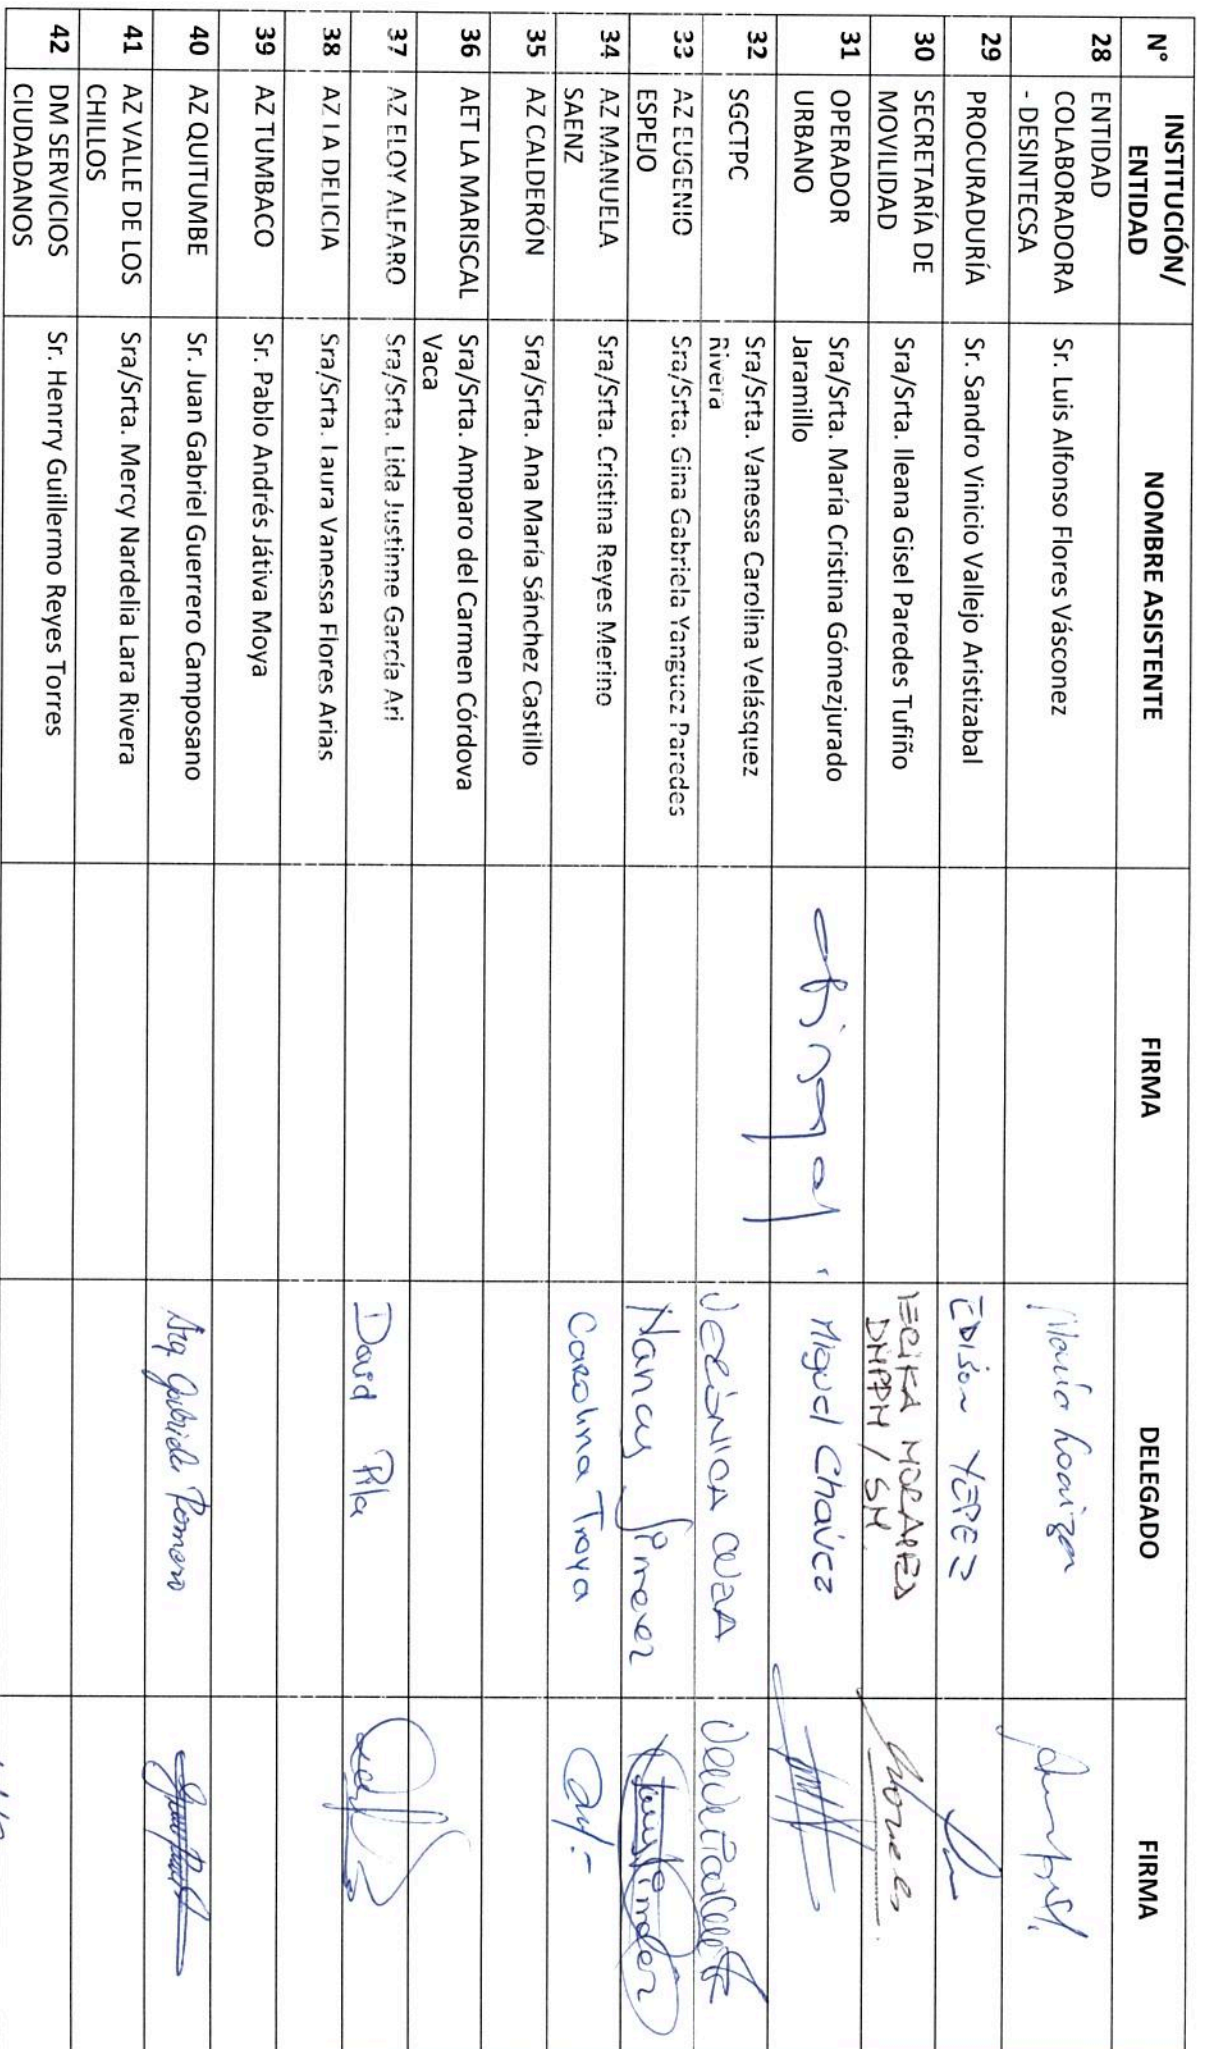 N° INSTITUCIÓN/ ENTIDAD NOMBRE ASISTENTE FIRMA DELEGADO FIRMA
28 ENTIDAD COLABORADORA - DESINTECSA Sr. Luis Alfonso Flores Vásconez María Loaiza
29 PROCURADURÍA Sr. Sandro Vinicio Vallejo Aristizabal EDISON YEPEZ
30 SECRETARÍA DE MOVILIDAD Sra/Srta. Ileana Gisel Paredes Tufiño ERIKA MORALES DMPPM / SM.
31 OPERADOR URBANO Sra/Srta. María Cristina Gómezjurado Jaramillo Miguel Chávez
32 SGCTPC Sra/Srta. Vanessa Carolina Velásquez Rivera VERÓNICA
33 AZ EUGENIO ESPEJO Sra/Srta. Gina Gabriela Yanguez Paredes Nancy
34 AZ MANUELA SAENZ Sra/Srta. Cristina Reyes Merino Carolina Troya
35 AZ CALDERÓN Sra/Srta. Ana María Sánchez Castillo
36 AET LA MARISCAL Sra/Srta. Amparo del Carmen Córdova Vaca
37 AZ ELOY ALFARO Sra/Srta. Lida Justinne García Ari David Pila
38 AZ LA DELICIA Sra/Srta. Laura Vanessa Flores Arias
39 AZ TUMBACO Sr. Pablo Andrés Játiva Moya
40 AZ QUITUMBE Sr. Juan Gabriel Guerrero Camposano Arq Gabriela Romero
41 AZ VALLE DE LOS CHILLOS Sra/Srta. Mercy Nardelia Lara Rivera
42 DM SERVICIOS CIUDADANOS Sr. Henrry Guillermo Reyes Torres